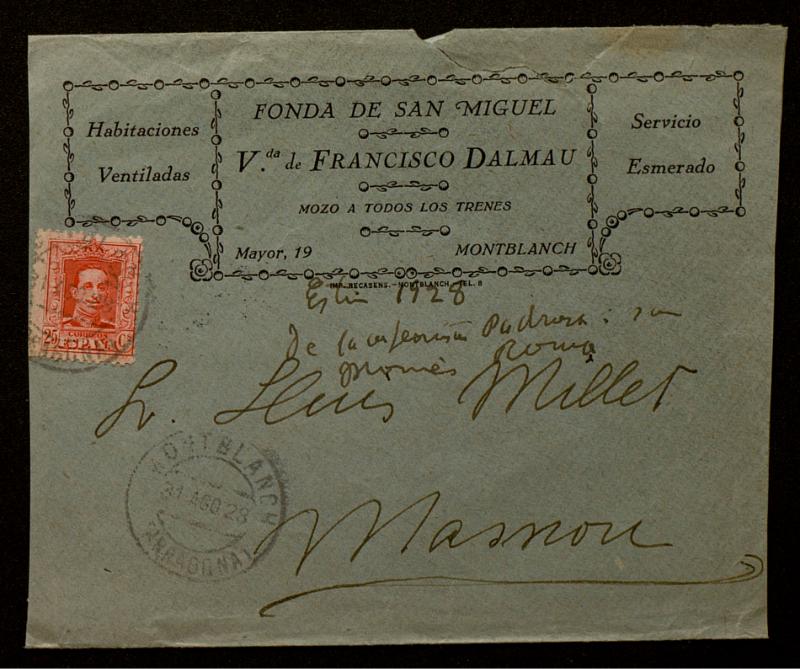 FONDA DE SAN MIGUEL
Habitaciones
Ventiladas
V.da de FRANCISCO DALMAU
Servicio
Esmerado
MOZO A TODOS LOS TRENES
Mayor, 19 MONTBLANCH
IMP. RECASENS.-MONTBLANCH.-TEL. 8
CORREOS
25 ESPAÑA Cs
Estiu 1928
De la Pedrera: sa
només Roma
Sr. Lluís Millet
MONTBLANCH
31 AGO 28
(TARRAGONA)
Masnou